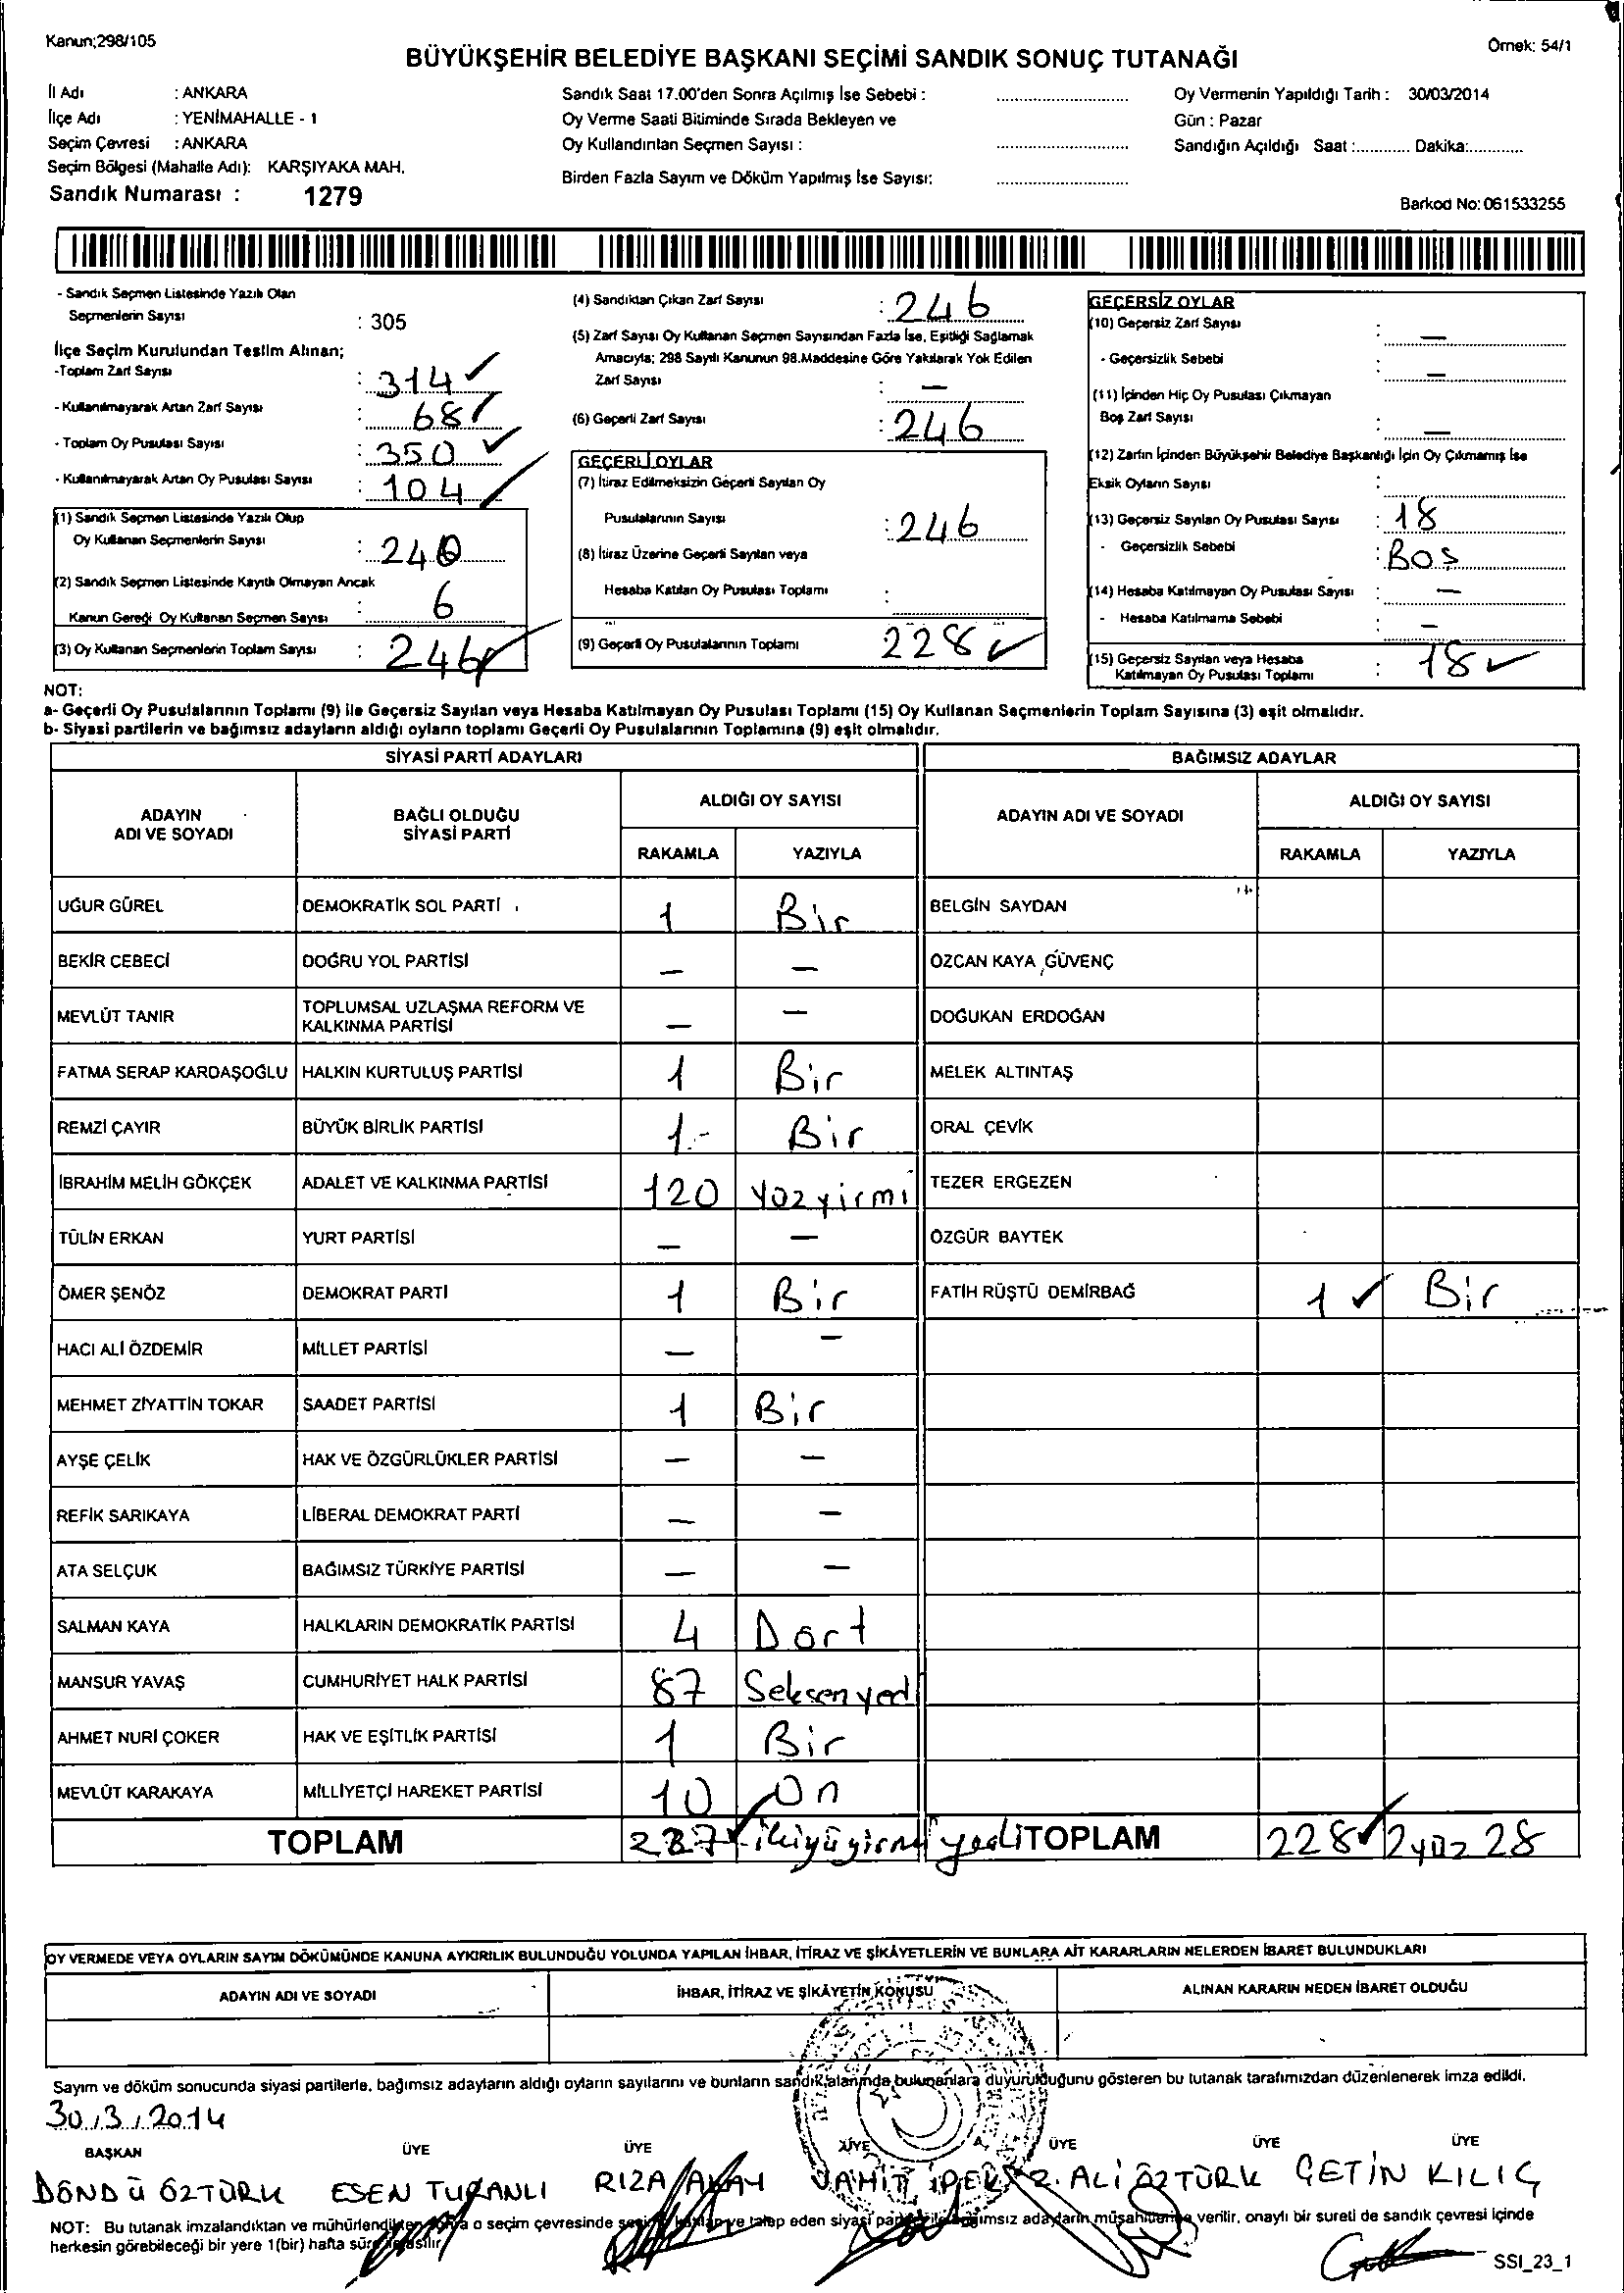 Kanun;298/105
Örnek: 54/1
BÜYÜKŞEHİR BELEDİYE BAŞKANI SEÇİMİ SANDIK SONUÇ TUTANAĞI
İl Adı : ANKARA
İlçe Adı : YENİMAHALLE - 1
Seçim Çevresi : ANKARA
Seçim Bölgesi (Mahalle Adı): KARŞIYAKA MAH.
Sandık Numarası : 1279
Sandık Saat 17.00'den Sonra Açılmış İse Sebebi :
Oy Verme Saati Bitiminde Sırada Bekleyen ve
Oy Kullandırılan Seçmen Sayısı :
Birden Fazla Sayım ve Döküm Yapılmış İse Sayısı:
Oy Vermenin Yapıldığı Tarih : 30/03/2014
Gün : Pazar
Sandığın Açıldığı Saat :............ Dakika:............
Barkod No: 061533255
- Sandık Seçmen Listesinde Yazılı Olan
Seçmenlerin Sayısı : 305
İlçe Seçim Kurulundan Teslim Alınan;
-Toplam Zarf Sayısı : 314 ✓
- Kullanılmayarak Artan Zarf Sayısı : 68 ✓
- Toplam Oy Pusulası Sayısı : 350 ✓
- Kullanılmayarak Artan Oy Pusulası Sayısı : 104 ✓
(1) Sandık Seçmen Listesinde Yazılı Olup
Oy Kullanan Seçmenlerin Sayısı : 240
(2) Sandık Seçmen Listesinde Kayıtlı Olmayan Ancak
Kanun Gereği Oy Kullanan Seçmen Sayısı : 6
(3) Oy Kullanan Seçmenlerin Toplam Sayısı : 246 ✓
(4) Sandıktan Çıkan Zarf Sayısı : 246
(5) Zarf Sayısı Oy Kullanan Seçmen Sayısından Fazla İse, Eşitliği Sağlamak
Amacıyla; 298 Sayılı Kanunun 98.Maddesine Göre Yakılarak Yok Edilen
Zarf Sayısı : —
(6) Geçerli Zarf Sayısı : 246
GEÇERLİ OYLAR
(7) İtiraz Edilmeksizin Geçerli Sayılan Oy
Pusulalarının Sayısı : 246
(8) İtiraz Üzerine Geçerli Sayılan veya
Hesaba Katılan Oy Pusulası Toplamı :
(9) Geçerli Oy Pusulalarının Toplamı 228 ✓
GEÇERSİZ OYLAR
(10) Geçersiz Zarf Sayısı : —
- Geçersizlik Sebebi : —
(11) İçinden Hiç Oy Pusulası Çıkmayan
Boş Zarf Sayısı : —
(12) Zarfın İçinden Büyükşehir Belediye Başkanlığı İçin Oy Çıkmamış İse
Eksik Oyların Sayısı :
(13) Geçersiz Sayılan Oy Pusulası Sayısı : 18
- Geçersizlik Sebebi : BOŞ
(14) Hesaba Katılmayan Oy Pusulası Sayısı : —
- Hesaba Katılmama Sebebi : —
(15) Geçersiz Sayılan veya Hesaba
Katılmayan Oy Pusulası Toplamı : 18 ✓
NOT:
a- Geçerli Oy Pusulalarının Toplamı (9) ile Geçersiz Sayılan veya Hesaba Katılmayan Oy Pusulası Toplamı (15) Oy Kullanan Seçmenlerin Toplam Sayısına (3) eşit olmalıdır.
b- Siyasi partilerin ve bağımsız adayların aldığı oyların toplamı Geçerli Oy Pusulalarının Toplamına (9) eşit olmalıdır.
SİYASİ PARTİ ADAYLARI BAĞIMSIZ ADAYLAR
ADAYIN ADI VE SOYADI BAĞLI OLDUĞU SİYASİ PARTİ ALDIĞI OY SAYISI ADAYIN ADI VE SOYADI ALDIĞI OY SAYISI
RAKAMLA YAZIYLA RAKAMLA YAZIYLA
UĞUR GÜREL DEMOKRATİK SOL PARTİ 1 Bir BELGİN SAYDAN
BEKİR CEBECİ DOĞRU YOL PARTİSİ — — ÖZCAN KAYA GÜVENÇ
MEVLÜT TANIR TOPLUMSAL UZLAŞMA REFORM VE KALKINMA PARTİSİ — — DOĞUKAN ERDOĞAN
FATMA SERAP KARDAŞOĞLU HALKIN KURTULUŞ PARTİSİ 1 Bir MELEK ALTINTAŞ
REMZİ ÇAYIR BÜYÜK BİRLİK PARTİSİ 1.- Bir ORAL ÇEVİK
İBRAHİM MELİH GÖKÇEK ADALET VE KALKINMA PARTİSİ 120 Yüzyirmi TEZER ERGEZEN
TÜLİN ERKAN YURT PARTİSİ — — ÖZGÜR BAYTEK
ÖMER ŞENÖZ DEMOKRAT PARTİ 1 Bir FATİH RÜŞTÜ DEMİRBAĞ 1 ✓ Bir
HACI ALİ ÖZDEMİR MİLLET PARTİSİ — —
MEHMET ZİYATTİN TOKAR SAADET PARTİSİ 1 Bir
AYŞE ÇELİK HAK VE ÖZGÜRLÜKLER PARTİSİ — —
REFİK SARIKAYA LİBERAL DEMOKRAT PARTİ — —
ATA SELÇUK BAĞIMSIZ TÜRKİYE PARTİSİ — —
SALMAN KAYA HALKLARIN DEMOKRATİK PARTİSİ 4 Dört
MANSUR YAVAŞ CUMHURİYET HALK PARTİSİ 87 Seksenyedi
AHMET NURİ ÇOKER HAK VE EŞİTLİK PARTİSİ 1 Bir
MEVLÜT KARAKAYA MİLLİYETÇİ HAREKET PARTİSİ 10 On
TOPLAM 227 ✓ ikiyüyirmi yedi TOPLAM 228 ✓ 2yüz 28
OY VERMEDE VEYA OYLARIN SAYIM DÖKÜMÜNDE KANUNA AYKIRILIK BULUNDUĞU YOLUNDA YAPILAN İHBAR, İTİRAZ VE ŞİKÂYETLERİN VE BUNLARA AİT KARARLARIN NELERDEN İBARET BULUNDUKLARI
ADAYIN ADI VE SOYADI İHBAR, İTİRAZ VE ŞİKÂYETİN KONUSU ALINAN KARARIN NEDEN İBARET OLDUĞU
Sayım ve döküm sonucunda siyasi partilerle, bağımsız adayların aldığı oyların sayılarını ve bunların sandık alanında bulunanlara duyurulduğunu gösteren bu tutanak tarafımızdan düzenlenerek imza edildi.
30/3/2014
BAŞKAN ÜYE ÜYE ÜYE ÜYE ÜYE ÜYE
DÖNDÜ ÖZTÜRK ESEN TURANLI RIZA AKAY VAHİT İPEK R. ALİ ÖZTÜRK ÇETİN KILIÇ
NOT: Bu tutanak imzalandıktan ve mühürlendikten sonra o seçim çevresinde seçime katılan ve talep eden siyasi parti ile bağımsız adayların müşahitlerine verilir, onaylı bir sureti de sandık çevresi içinde
herkesin görebileceği bir yere 1(bir) hafta süre ile asılır.
SSI_23_1